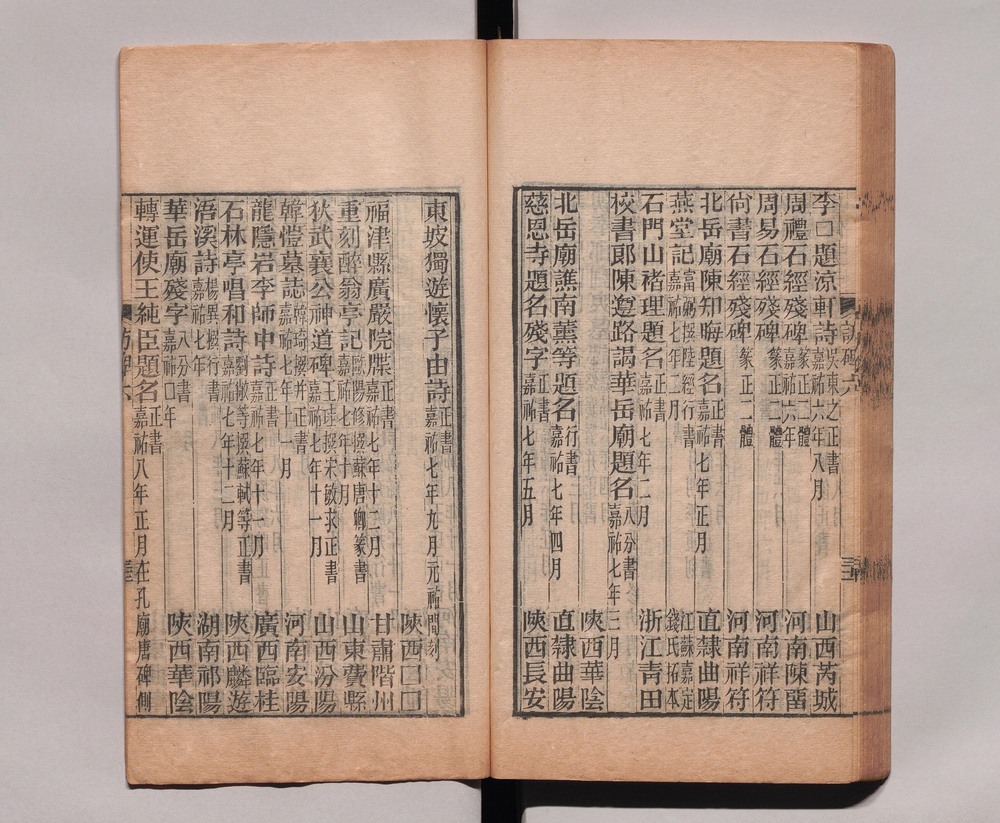 李口題涼軒詩 吳東之正書 嘉祐六年八月 山西芮城
周禮石經殘碑 篆正二體 嘉祐六年 河南陳畱
周易石經殘碑 篆正二體 河南祥符
尙書石經殘碑 篆正二體 河南祥符
北岳廟陳知晦題名 正書 嘉祐七年正月 直隸曲陽
燕堂記 富弼撰陸經行書 嘉祐七年二月 江蘇嘉定錢氏拓本
石門山褚理題名 正書 嘉祐七年二月 浙江青田
校書郎陳遵路謁華岳廟題名 八分書 嘉祐七年三月
陝西華陰
北岳廟譙南薰等題名 行書 嘉祐七年四月 直隸曲陽
慈恩寺題名殘字 正書 嘉祐七年五月 陝西長安
東坡獨遊懷子由詩 正書 嘉祐七年九月元祐間刻
陝西口口
福津縣廣嚴院牒 正書 嘉祐七年十二月 甘肅階州
重刻醉翁亭記 歐陽修撰蘇唐卿篆書 嘉祐七年十月 山東費縣
狄武襄公神道碑 王珪撰宋敏求正書 嘉祐七年十一月 山西汾陽
韓愷墓誌 韓琦撰并正書 嘉祐七年十一月 河南安陽
龍隱岩李師中詩 正書 嘉祐七年十一月 廣西臨桂
石林亭唱和詩 劉敞等撰蘇軾等正書 嘉祐七年十二月 陝西麟遊
浯溪詩 楊異撰行書 嘉祐七年 湖南祁陽
華岳廟殘字 八分書 嘉祐口年 陝西華陰
轉運使王純臣題名 正書 嘉祐八年正月在孔廟唐碑側